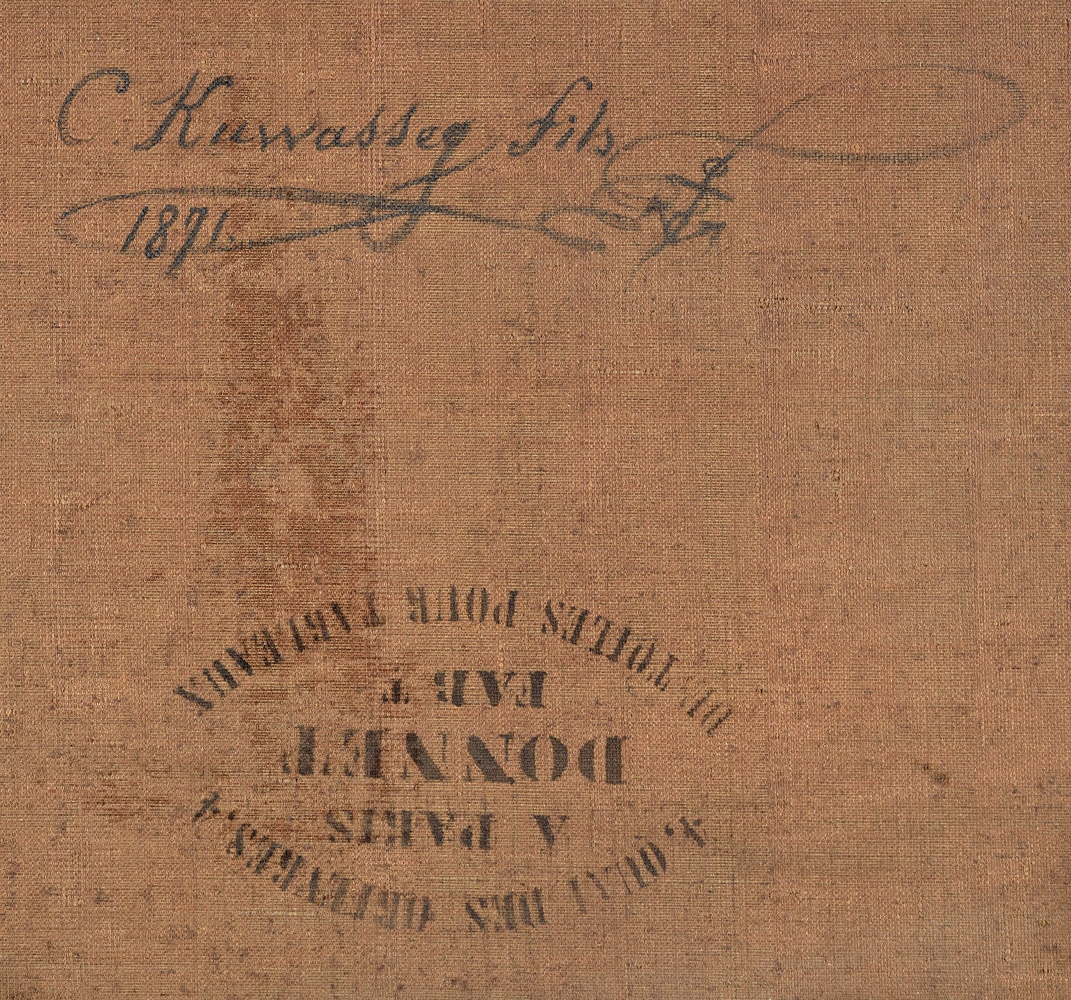 C. Kuwasseg fils
1871.
DE TOILES POUR TABLEAUX
FABT
DONNET
A PARIS
4, QUAI DES ORFEVRES, 4